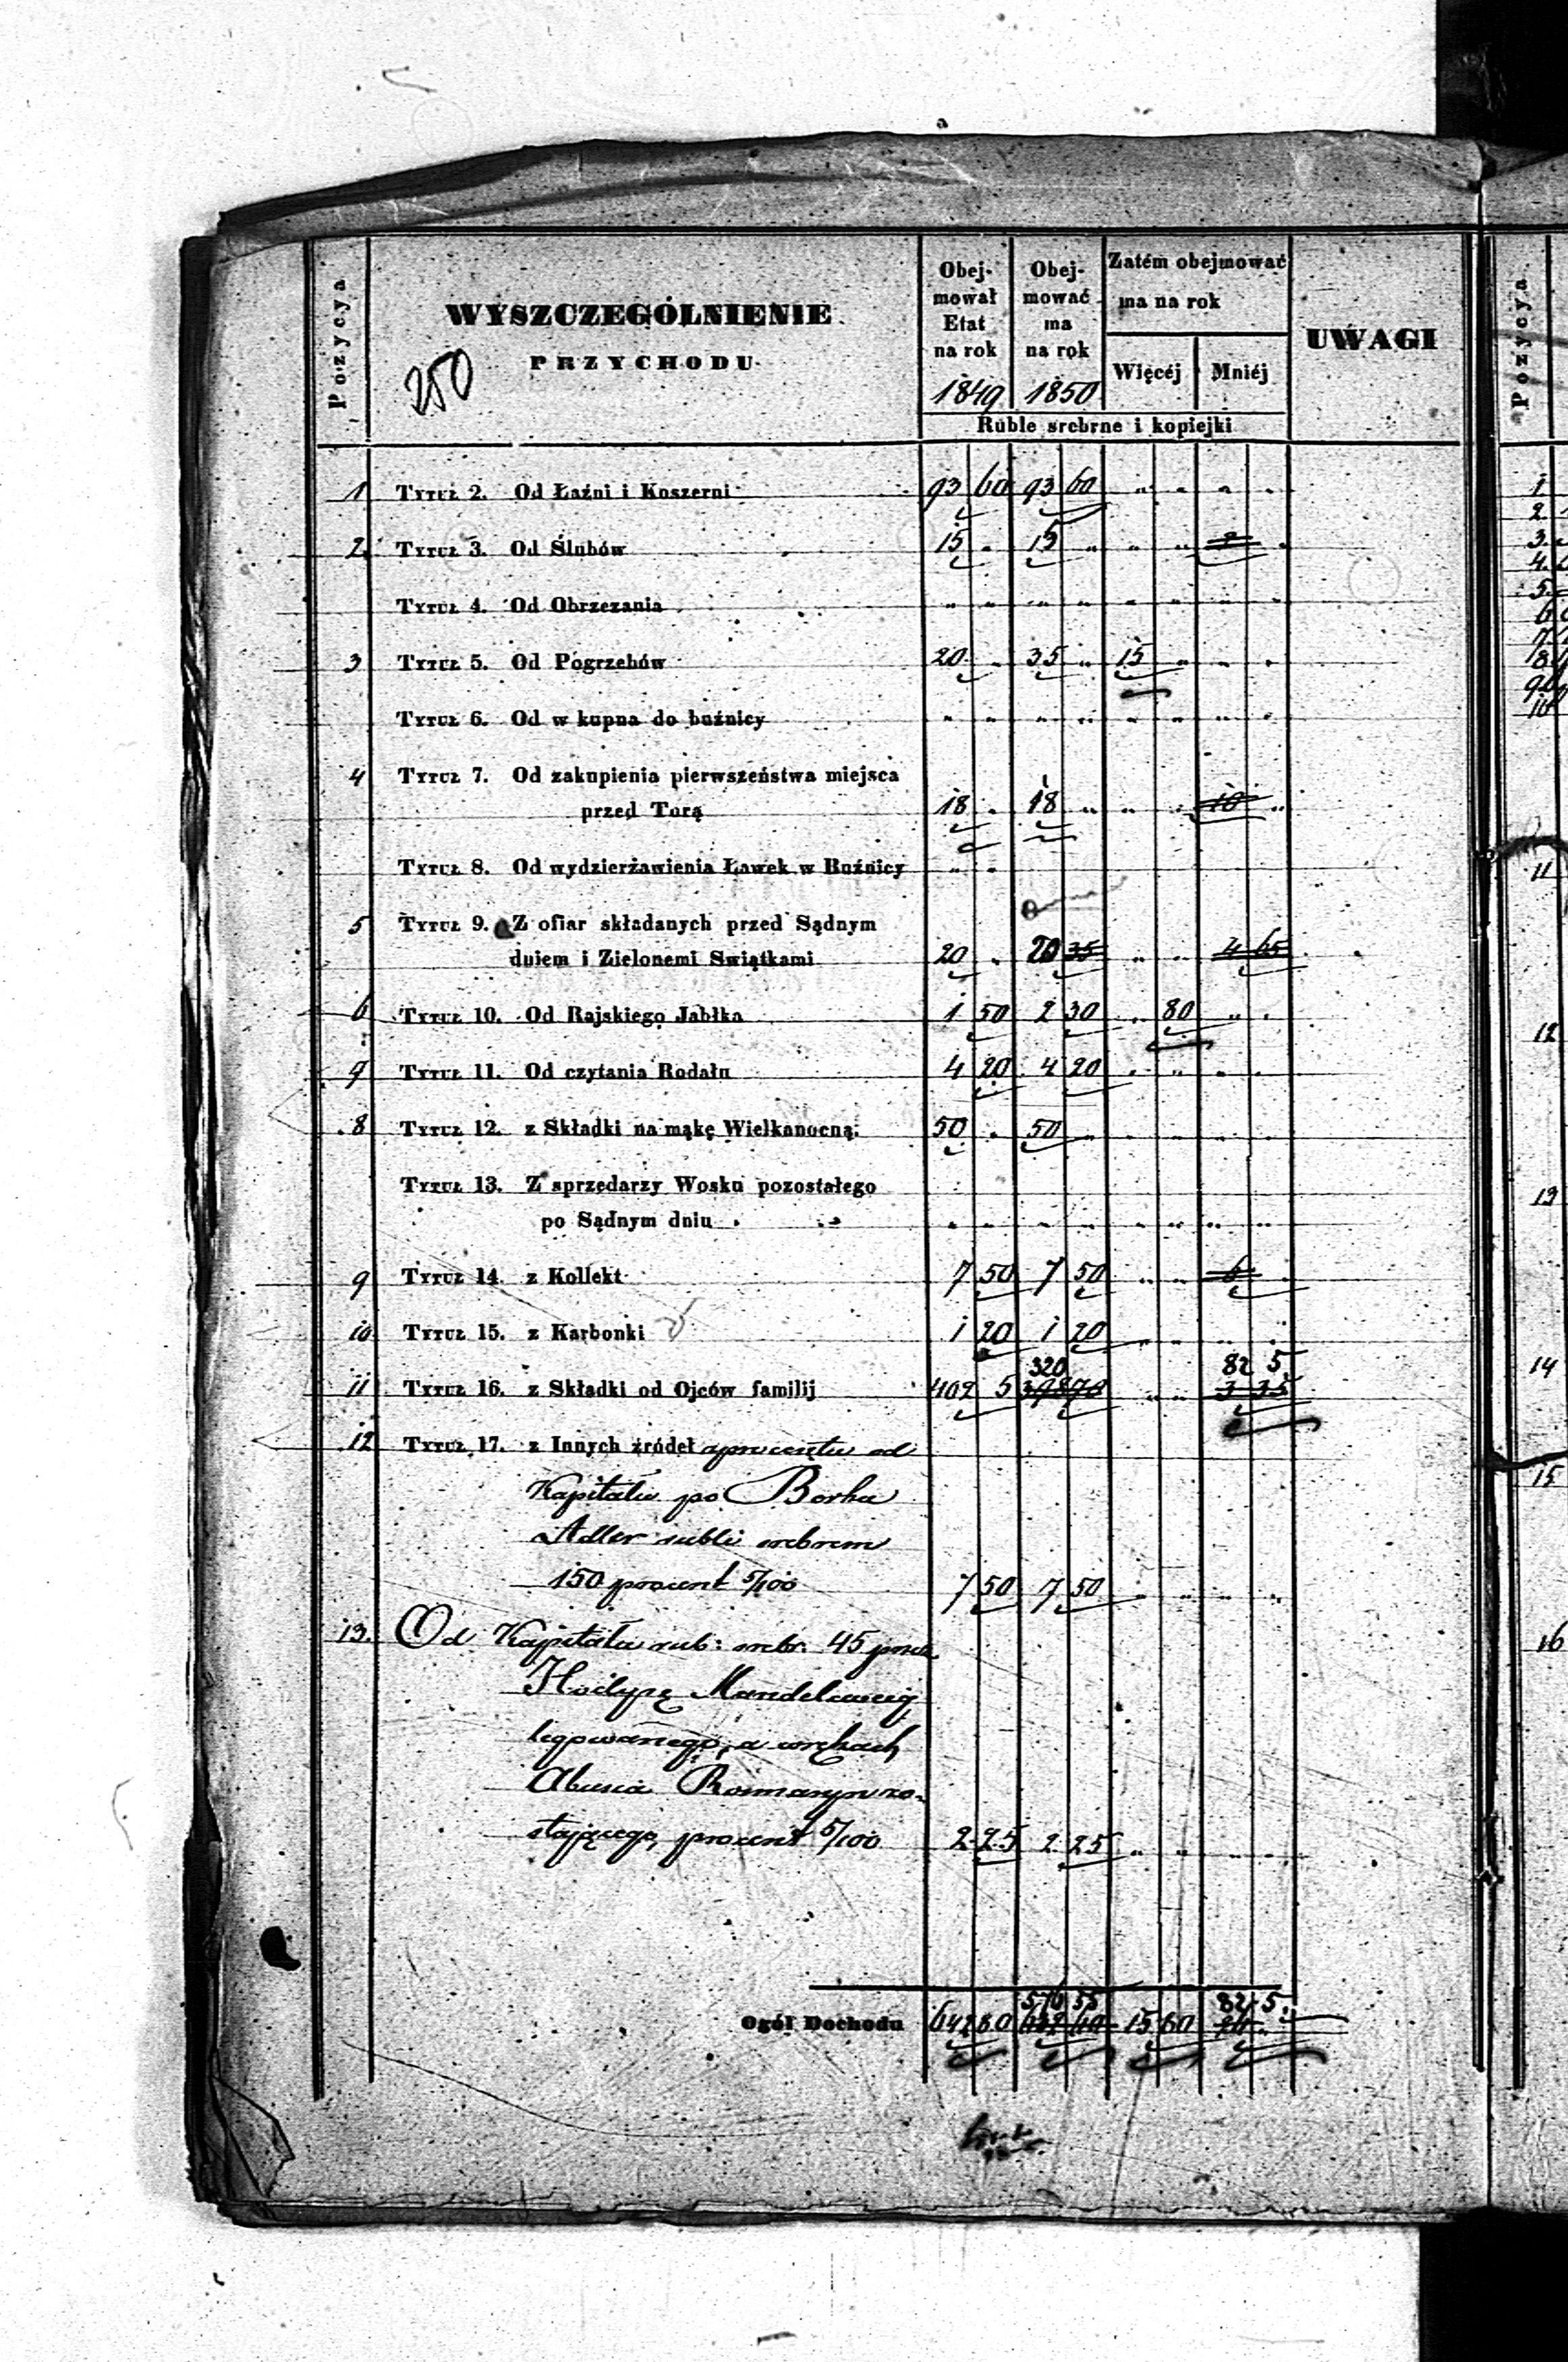 Pozycya
WYSZCZEGÓLNIENIE
PRZYCHODU
250
Obejmował Etat na rok 1849
Obejmować ma na rok 1850
Zatém obejmować ma na rok
Więcéj Mniéj
Ruble srebrne i kopiejki
UWAGI
1 TYTUŁ 2. Od Łaźni i Koszerni 93 60 93 60 " " " "
2. TYTUŁ 3. Od Ślubów 15 " 15 " " "
TYTUŁ 4. Od Obrzezania " " " " " " " "
3 TYTUŁ 5. Od Pogrzebów 20 " 35 " 15 " " "
TYTUŁ 6. Od w kupna do buźnicy " " " " " " " "
4 TYTUŁ 7. Od zakupienia pierwszeństwa miejsca
przed Torą 18 " 18 " " " 10 "
TYTUŁ 8. Od wydzierżawienia Ławek w Buźnicy " "
5 TYTUŁ 9. Z ofiar składanych przed Sądnym
dniem i Zielonemi Swiątkami 20 " 20 35 " " 4 65
6 TYTUŁ 10. Od Rajskiego Jabłka 1 50 2 30 " 80 " "
TYTUŁ 11. Od czytania Rodału 4 20 4 20 " " " "
8 TYTUŁ 12. z Składki na mąkę Wielkanocną. 50 " 50 " " " " "
TYTUŁ 13. Z sprzedarzy Wosku pozostałego
po Sądnym dniu " " " " " " " "
9 TYTUŁ 14. z Kollekt 7 50 7 50 " " 6 "
10 TYTUŁ 15. z Karbonki 1 20 1 20 " " " "
320 82 5
11 TYTUŁ 16. z Składki od Ojców familij 402 5 398 70 " " 3 35
12 TYTUŁ 17. z Innych źródeł a procentu od
Kapitału po Borka
Adler rubli srebrem
150 procent 5/100 7 50 7 50 " " " "
13. Od Kapitału rub: srebr. 45 przez
legowanego, a w rękach
Rosmaryn zo-
stającego, procent 5/100 2 25 2 25 " " " "
570 55 82 5
Ogół Dochodu 642 80 632 40 15 80
Pozycya
1.
2.
3.
4.
5.
6
7.
8.
9.
10
11
12
13
14
15
16